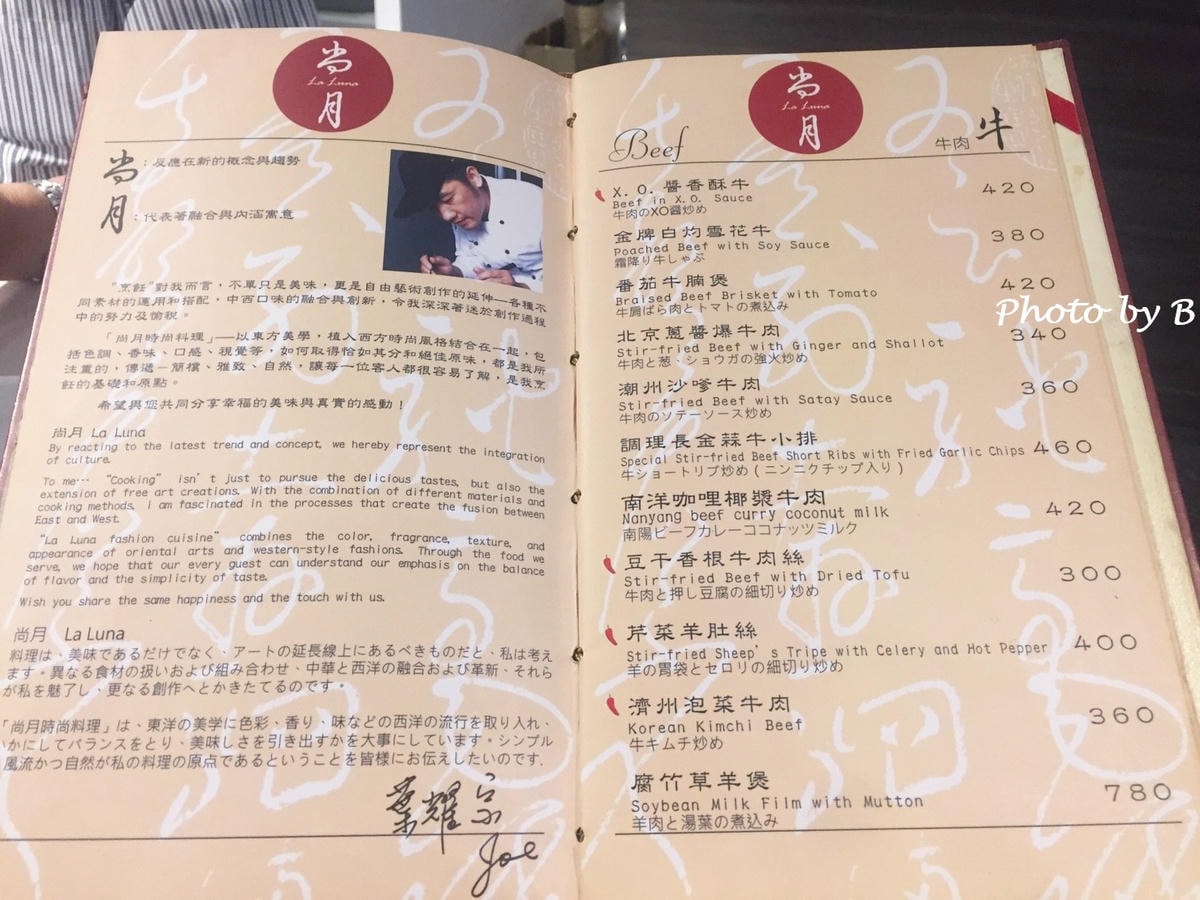 尚
La Luna
月
尚：反應在新的概念與趨勢
月：代表著融合與內涵寓意
"烹飪"對我而言，不單只是美味，更是自由藝術創作的延伸—各種不
同素材的運用和搭配，中西口味的融合與創新，令我深深著迷於創作過程
中的努力及愉悅。
「尚月時尚料理」——以東方美學，植入西方時尚風格結合在一起，包
括色調、香味、口感、視覺等，如何取得恰如其分和絕佳原味，都是我所
注重的，傳遞—簡樸、雅致、自然，讓每一位客人都很容易了解，是我烹
飪的基礎和原點。
希望與您共同分享幸福的美味與真實的感動！
尚月 La Luna
By reacting to the latest trend and concept, we hereby represent the integration
of culture.
To me… "Cooking" isn't just to pursue the delicious tastes, but also the
extension of free art creations. With the combination of different materials and
cooking methods, i am fascinated in the processes that create the fusion between
East and West.
"La Luna fashion cuisine" combines the color, fragrance, texture, and
appearance of oriental arts and western-style fashions. Through the food we
serve, we hope that our every guest can understand our emphasis on the balance
of flavor and the simplicity of taste.
Wish you share the same happiness and the touch with us.
尚月 La Luna
料理は、美味であるだけでなく、アートの延長線上にあるべきものだと、私は考え
ます。異なる食材の扱いおよび組み合わせ、中華と西洋の融合および革新、それら
が私を魅了し、更なる創作へとかきたてるのです。
「尚月時尚料理」は、東洋の美学に色彩、香り、味などの西洋の流行を取り入れ、
いかにしてバランスをとり、美味しさを引き出すかを大事にしています。シンプル
風流かつ自然が私の料理の原点であるということを皆様にお伝えしたいのです.
葉耀宗
Joe
尚
La Luna
月
Beef
牛肉 牛
X.O.醬香酥牛 420
Beef in X.O. Sauce
牛肉のXO醤炒め
金牌白灼雪花牛 380
Poached Beef with Soy Sauce
霜降り牛しゃぶ
番茄牛腩煲 420
Braised Beef Brisket with Tomato
牛肩ばら肉とトマトの煮込み
北京蔥醬爆牛肉 340
Stir-fried Beef with Ginger and Shallot
牛肉と葱、ショウガの強火炒め
潮州沙嗲牛肉 360
Stir-fried Beef with Satay Sauce
牛肉のソテーソース炒め
調理長金蒜牛小排 460
Special Stir-fried Beef Short Ribs with Fried Garlic Chips
牛ショートリブ炒め(ニンニクチップ入り)
南洋咖哩椰漿牛肉 420
Nanyang beef curry coconut milk
南陽ビーフカレーココナッツミルク
豆干香根牛肉絲 300
Stir-fried Beef with Dried Tofu
牛肉と押し豆腐の細切り炒め
芹菜羊肚絲 400
Stir-fried Sheep's Tripe with Celery and Hot Pepper
羊の胃袋とセロリの細切り炒め
濟州泡菜牛肉 360
Korean Kimchi Beef
牛キムチ炒め
腐竹草羊煲 780
Soybean Milk Film with Mutton
羊肉と湯葉の煮込み
Photo by B